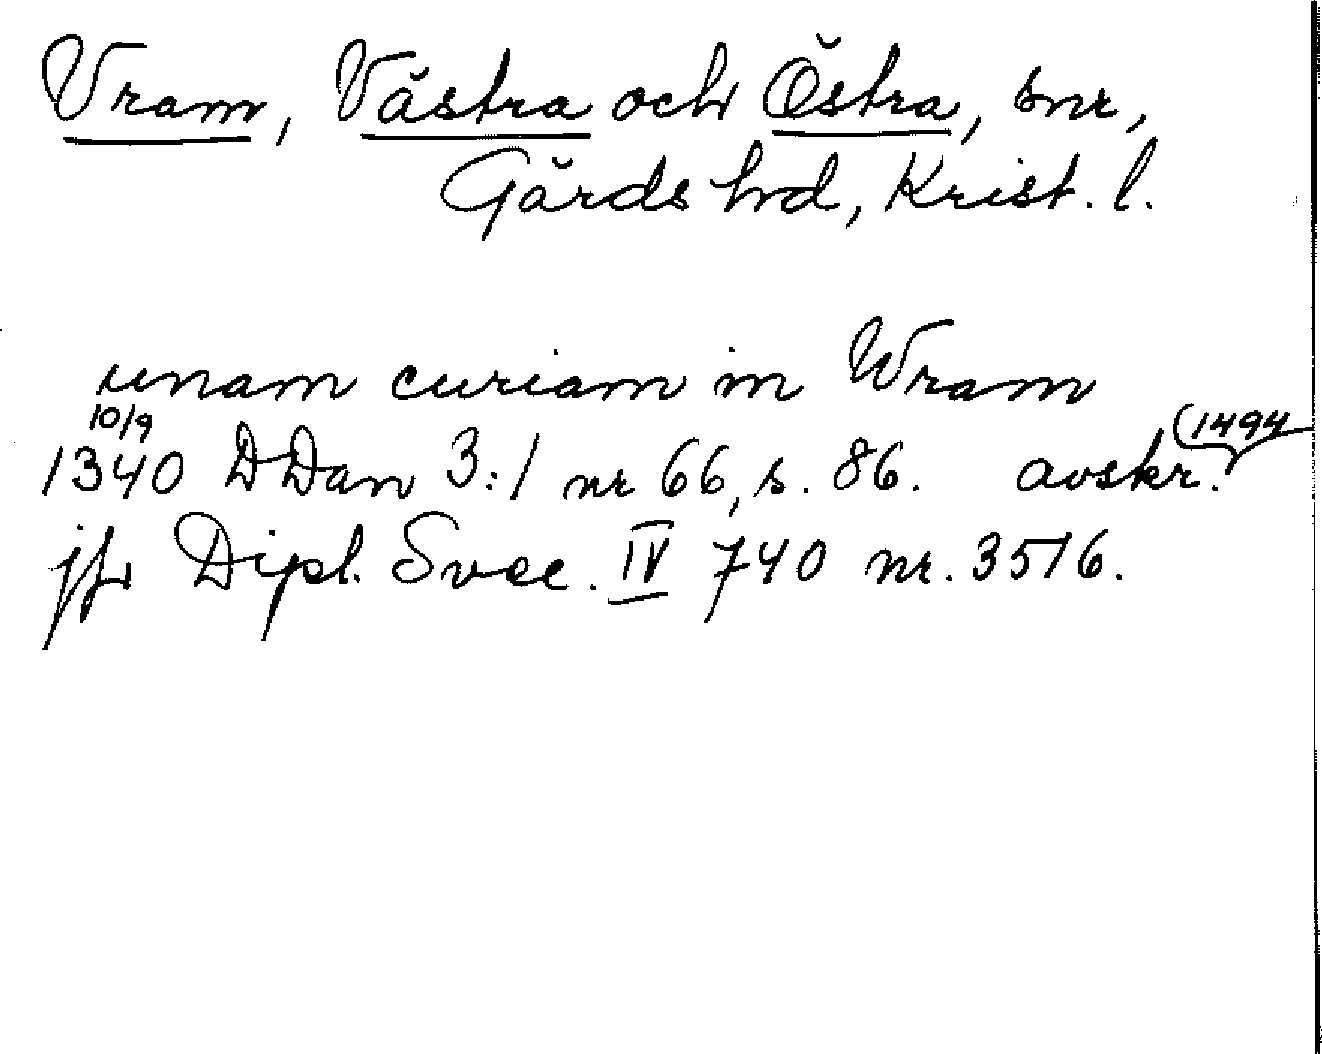 Vram, Västra och Östra, snr,
Gärds hd, Krist. l.
unam curiam in Wram
10/9
1340 DDan 3:1 nr 66, s. 86. avskr. (1494
jfr Dipl. Svec. IV 740 nr. 3516.